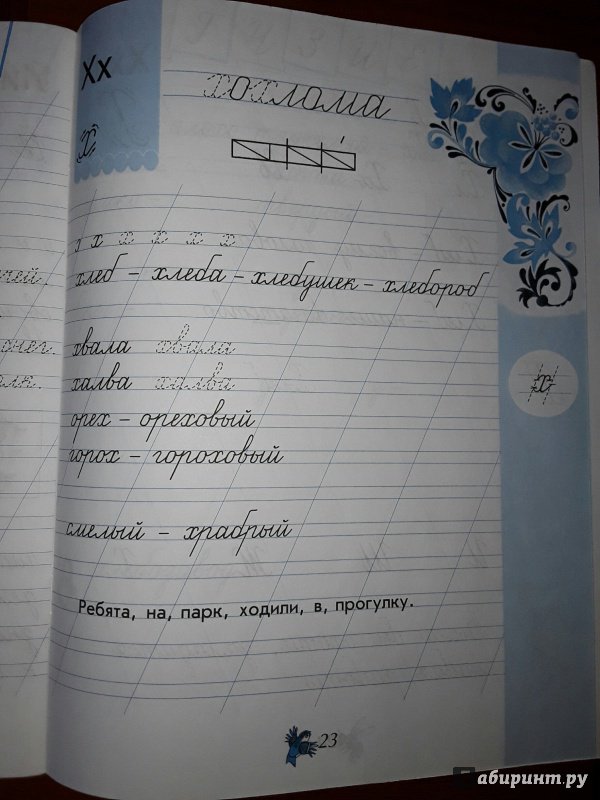 Хх
х
хохлома
х х х х х х
хлеб – хлеба – хлебушек – хлебороб
хвала хвала
халва халва
орех – ореховый
горох – гороховый
смелый – храбрый
х
Ребята, на, парк, ходили, в, прогулку.
23
лабиринт.ру